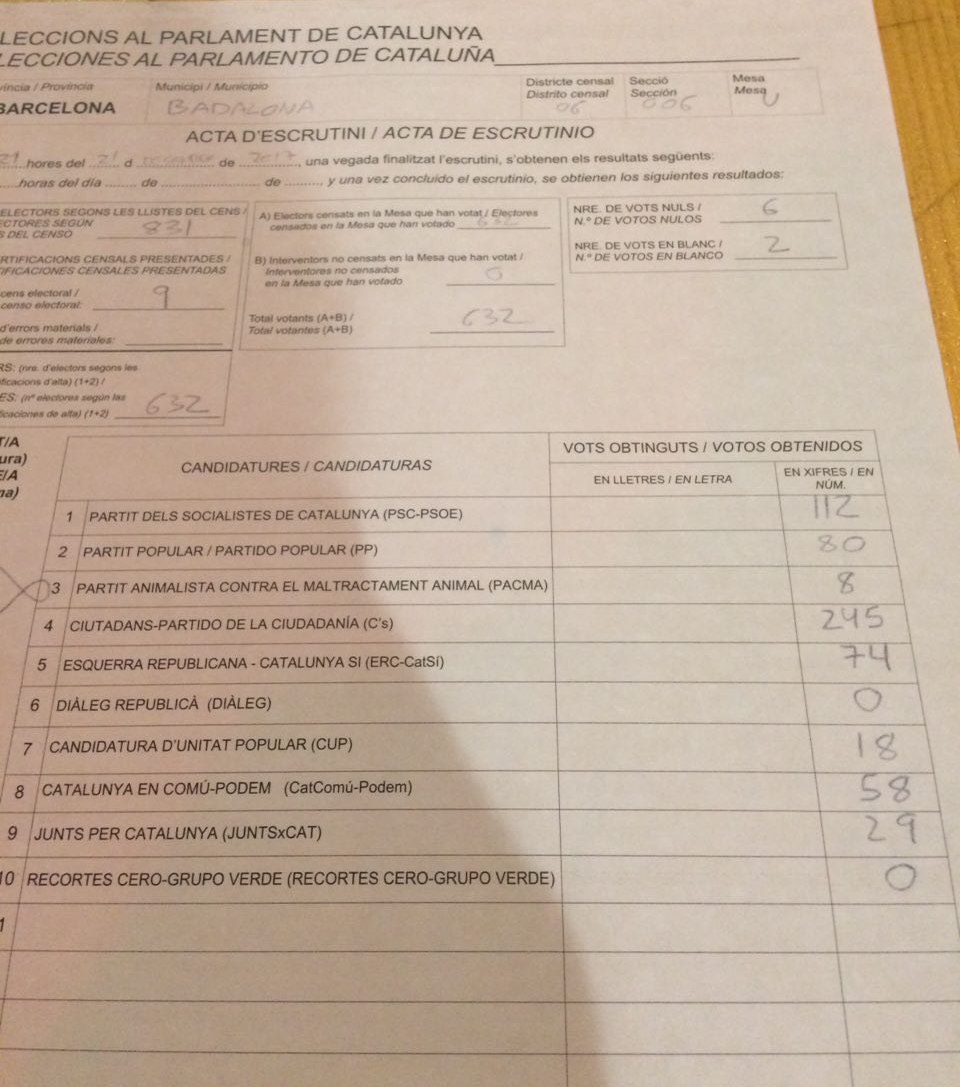 LECCIONS AL PARLAMENT DE CATALUNYA
LECCIONES AL PARLAMENTO DE CATALUÑA
víncia / Província
BARCELONA
Municipi / Municipio
BADALONA
Districte censal
Distrito censal
06
Secció
Sección
006
Mesa
Mesa
U
ACTA D'ESCRUTINI / ACTA DE ESCRUTINIO
21 hores del 21 d DESEMBRE de 2017, una vegada finalitzat l'escrutini, s'obtenen els resultats següents:
horas del día ........ de ........................ de ........., y una vez concluido el escrutinio, se obtienen los siguientes resultados:
ELECTORS SEGONS LES LLISTES DEL CENS /
ECTORES SEGÚN
S DEL CENSO 831
RTIFICACIONS CENSALS PRESENTADES /
TIFICACIONES CENSALES PRESENTADAS
cens electoral /
censo electoral: 9
d'errors materials /
de errores materiales:
RS: (nre. d'electors segons les
ificacions d'alta) (1+2) /
ES: (nº electores según las
ficaciones de alta) (1+2) 632
A) Electors censats en la Mesa que han votat / Electores
censados en la Mesa que han votado 632
B) Interventors no censats en la Mesa que han votat /
Interventores no censados
en la Mesa que han votado 0
Total votants (A+B) /
Total votantes (A+B) 632
NRE. DE VOTS NULS /
N.º DE VOTOS NULOS 6
NRE. DE VOTS EN BLANC /
N.º DE VOTOS EN BLANCO 2
T/A
ura)
E/A
na)
CANDIDATURES / CANDIDATURAS
VOTS OBTINGUTS / VOTOS OBTENIDOS
EN LLETRES / EN LETRA
EN XIFRES / EN
NÚM.
1 PARTIT DELS SOCIALISTES DE CATALUNYA (PSC-PSOE) 112
2 PARTIT POPULAR / PARTIDO POPULAR (PP) 80
3 PARTIT ANIMALISTA CONTRA EL MALTRACTAMENT ANIMAL (PACMA) 8
4 CIUTADANS-PARTIDO DE LA CIUDADANÍA (C's) 245
5 ESQUERRA REPUBLICANA - CATALUNYA SI (ERC-CatSí) 74
6 DIÀLEG REPUBLICÀ (DIÀLEG) 0
7 CANDIDATURA D'UNITAT POPULAR (CUP) 18
8 CATALUNYA EN COMÚ-PODEM (CatComú-Podem) 58
9 JUNTS PER CATALUNYA (JUNTSxCAT) 29
10 RECORTES CERO-GRUPO VERDE (RECORTES CERO-GRUPO VERDE) 0
1